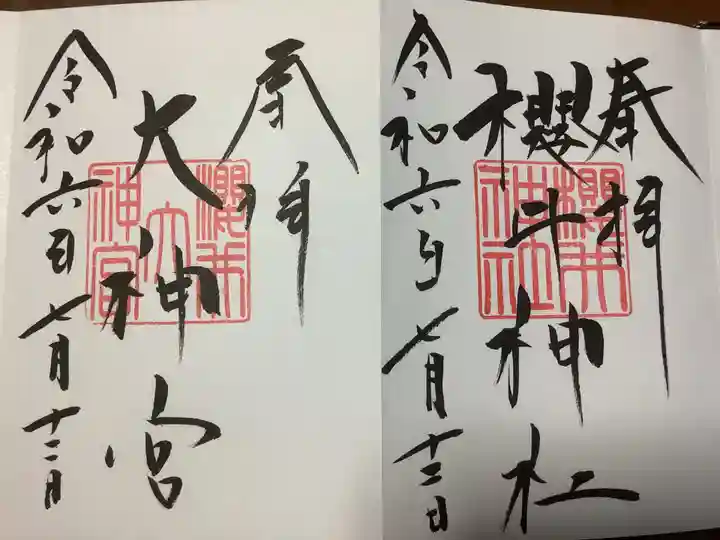 奉拝
櫻井神社
令和六年七月十二日
奉拝
大神宮
令和六年七月十二日
櫻井大神宮